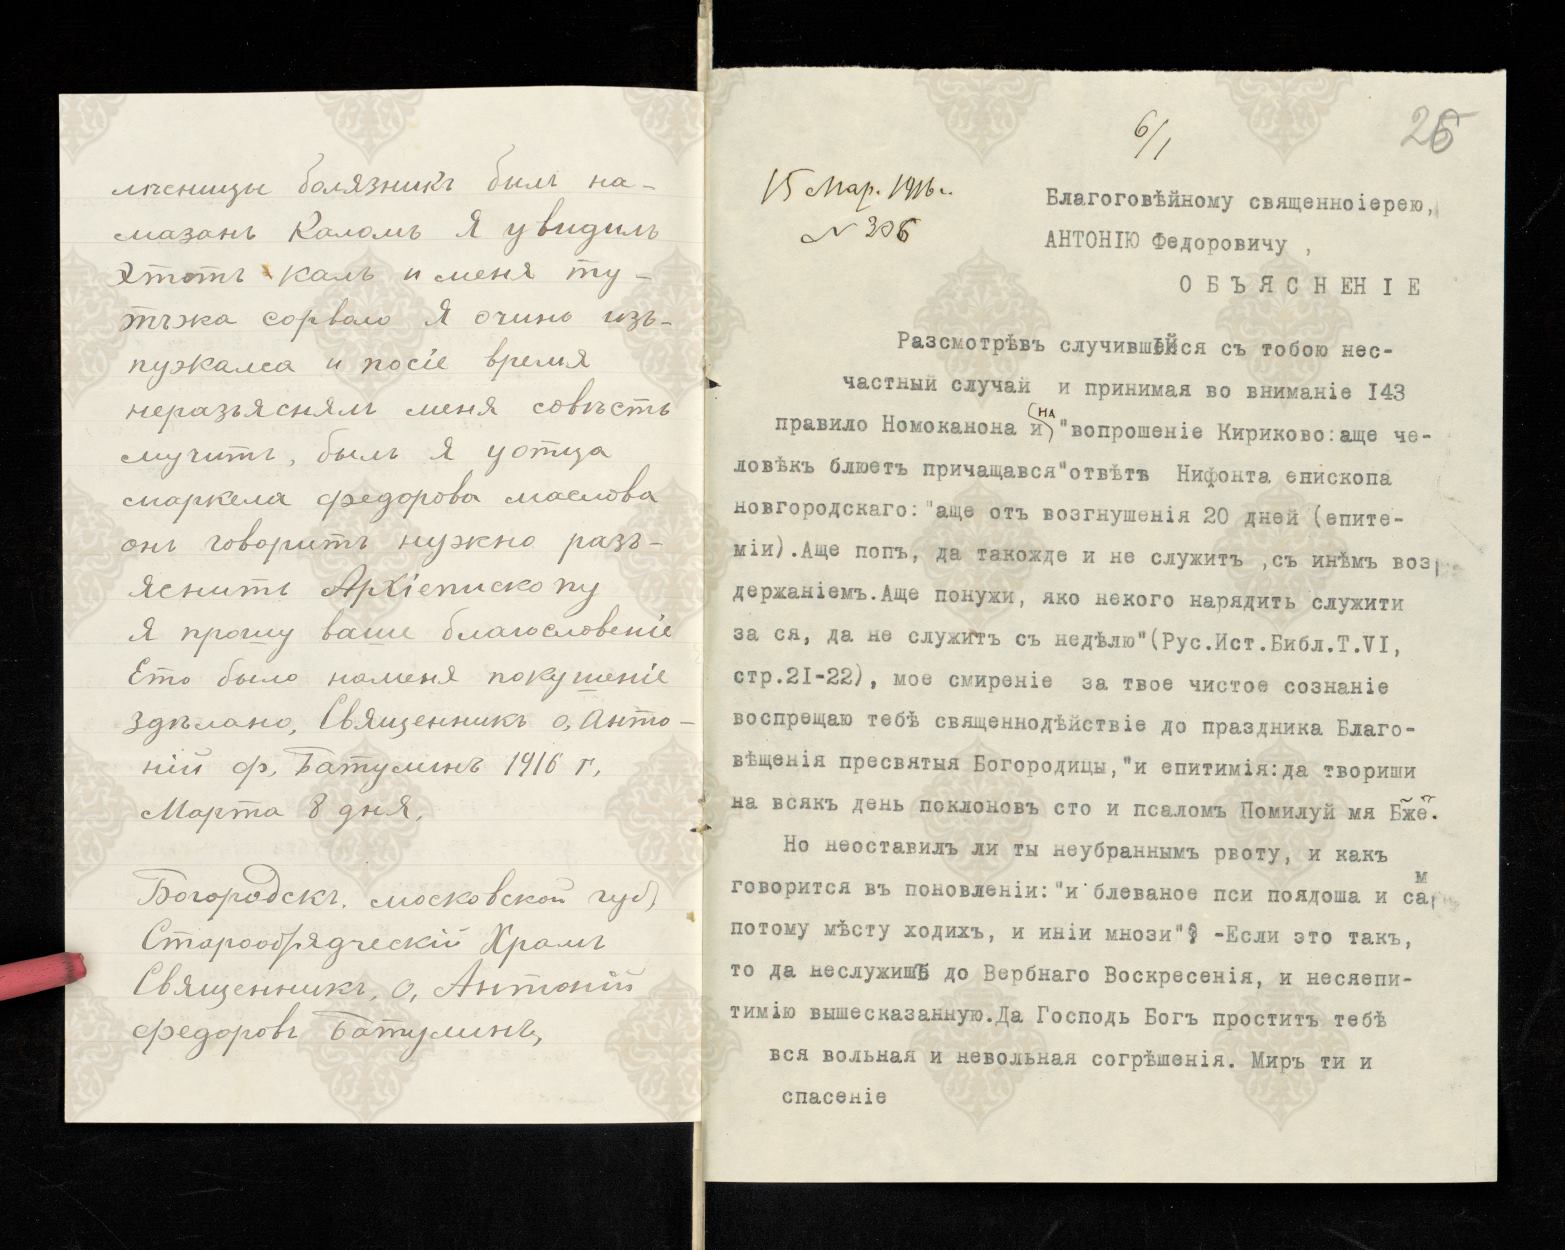 лѣсницы болязникъ былъ на-
мазанъ Каломъ Я увидилъ
Этотъ калъ и меня ту-
тъжа сорвало Я очино изъ-
пужалса и посіе время
неразъяснялъ меня совѣсть
мучитъ, былъ Я уотца
маркела федорова маслова
онъ говоритъ нужно разъ-
яснить Архіепископу
Я прошу ваше благословеніе
Ето было наменя покушеніе
здѣлано, Священникъ о, Анто-
ній ф, Батулинъ 1916 г,
Марта 8 дня,
Богородскъ, московской губ,
Старообрядческій Храмъ
Священникъ, о, Антоній
федоровъ Батулинъ,
26
6/1
15 Мар. 1916 г.
N 306
Благоговѣйному священноіерею,
АНТОНІЮ Федоровичу ,
О Б Ъ Я С Н ЕН І Е
Разсмотрѣвъ случившійся съ тобою нес-
частный случай и принимая во вниманіе 143
правило Номоканона и на "вопрошеніе Кириково:аще че-
ловѣкъ блюетъ причащався"отвѣтъ Нифонта епископа
новгородскаго:"аще отъ возгнушенія 20 дней (епите-
міи).Аще попъ, да такожде и не служитъ ,съ инѣмъ воз
держаніемъ.Аще понужи, яко некого нарядить служити
за ся, да не служитъ съ недѣлю"(Рус.Ист.Библ.Т.VI,
стр.21-22), мое смиреніе за твое чистое сознаніе
воспрещаю тебѣ священнодѣйствіе до праздника Благо-
вѣщенія пресвятыя Богородицы,"и епитимія:да твориши
на всякъ день поклоновъ сто и псаломъ Помилуй мя Бже.
Но неоставилъ ли ты неубраннымъ рвоту, и какъ
говорится въ поновленіи:"и блеваное пси поядоша и сам
потому мѣсту ходихъ, и иніи мнози"? -Если это такъ,
то да неслужишь до Вербнаго Воскресенія, и несяепи-
тимію вышесказанную.Да Господь Богъ проститъ тебѣ
вся вольная и невольная согрѣшенія. Миръ ти и
спасеніе